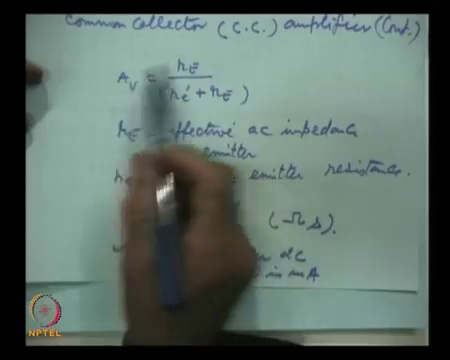 Common collector (C.C.) amplifier (Cont.)
A_V = r_E
(r_e' + r_E)
r_E effective ac impedance
emitter
emitter resistance.
(Ω s).
dc
in mA
NPTEL